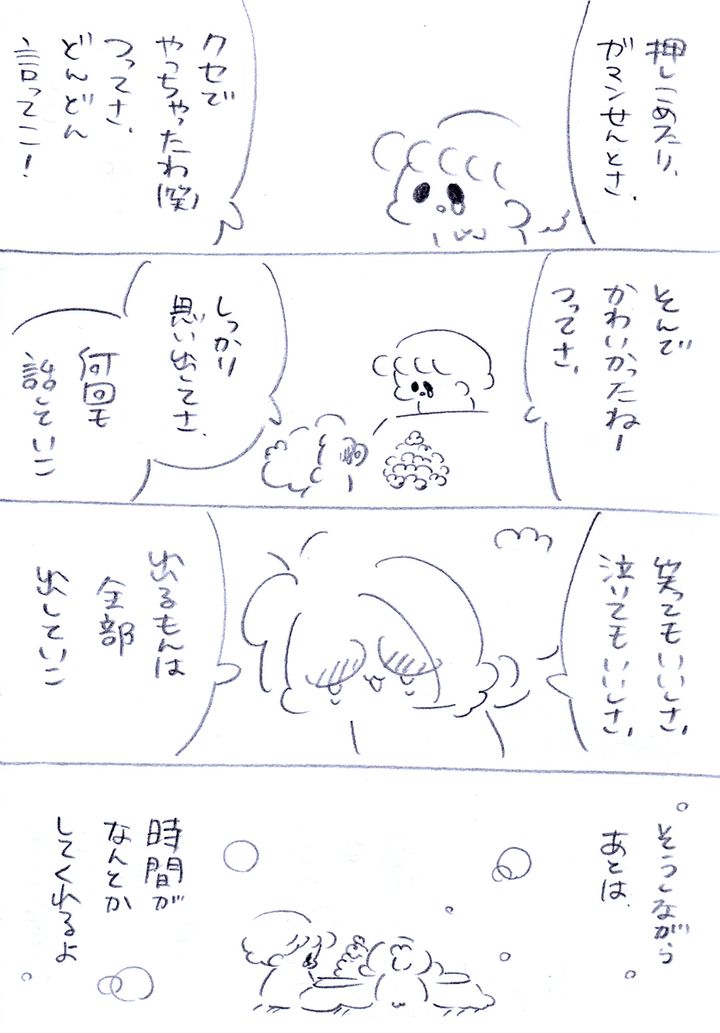 押しこめたり、
ガマンせんとさ、
クセで
やっちゃったわ(笑)
つってさ、
どんどん
言ってこ!
そんで
かわいかったねー
つってさ、
しっかり
思い出してさ、
何回も
話していこ
笑ってもいいしさ、
泣いてもいいしさ、
出るもんは
全部
出していこ
そうしながら
あとは、
時間が
なんとか
してくれるよ